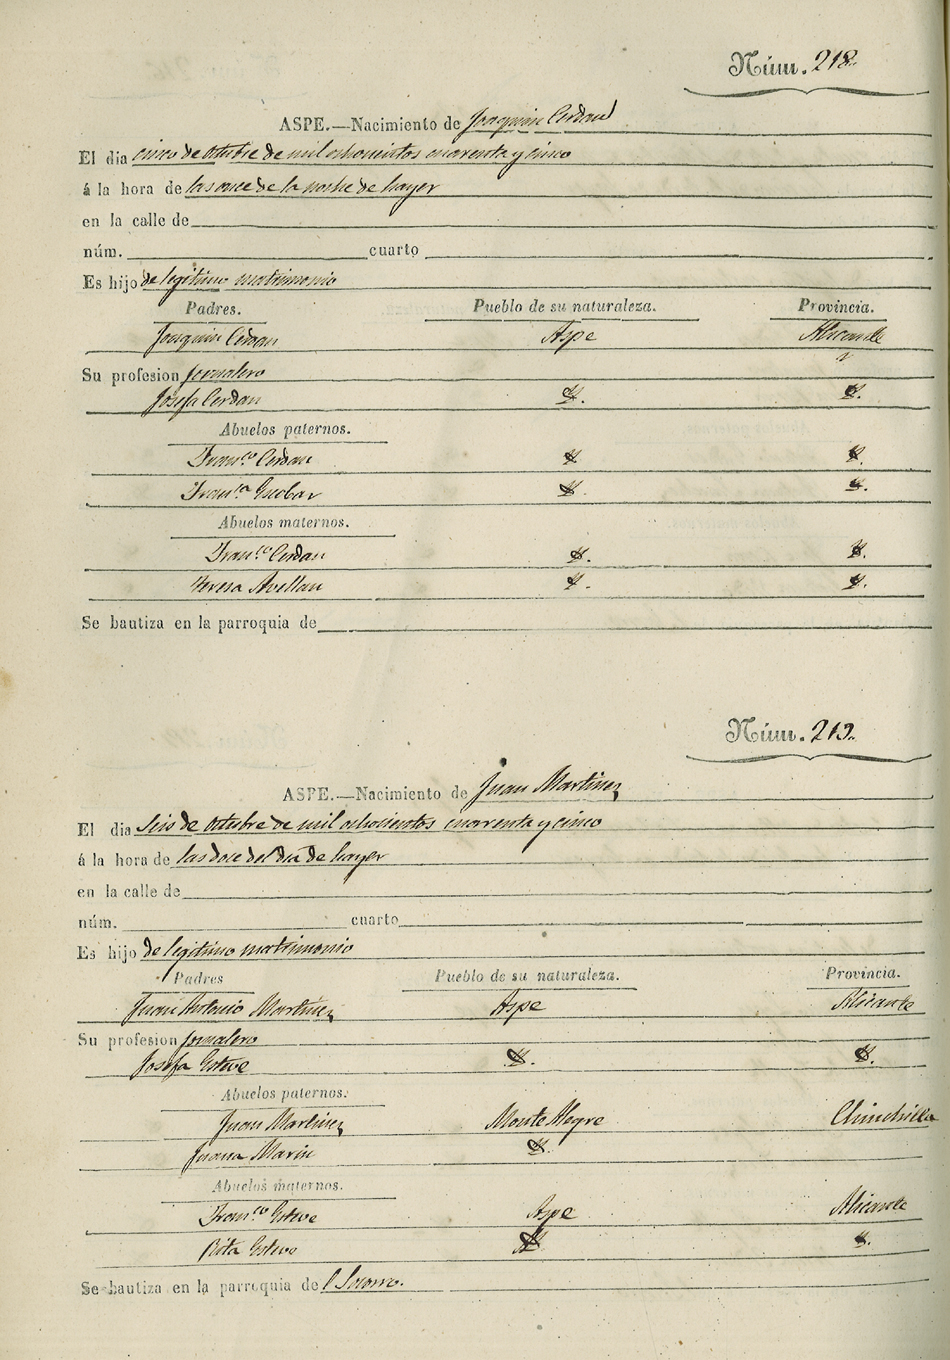 Núm. 218.
ASPE.—Nacimiento de Joaquin Cerdan
El dia cinco de octubre de mil ochocientos cuarenta y cinco
á la hora de las once de la noche de hayer
en la calle de
núm. cuarto
Es hijo de legitimo matrimonio
Padres. Pueblo de su naturaleza. Provincia.
Joaquin Cerdan Aspe Alicante
Su profesion jornalero
Josefa Cerdan Y. Y.
Abuelos paternos.
Franco Cerdan Y Y.
Franca Escobar Y. Y.
Abuelos maternos.
Franco Cerdan Y. Y.
Teresa Avellan Y. Y.
Se bautiza en la parroquia de
Núm. 219.
ASPE.—Nacimiento de Juan Martinez
El dia seis de octubre de mil ochocientos cuarenta y cinco
á la hora de las doce del dia de hayer
en la calle de
núm. cuarto
Es hijo de legitimo matrimonio
Padres Pueblo de su naturaleza. Provincia.
Juan Antonio Martinez Aspe Alicante
Su profesion jornalero
Josefa Esteve Y. Y.
Abuelos paternos.
Juan Martinez Monte Alegre Chinchilla
Juana Marin Y.
Abuelos maternos.
Franco Esteve Aspe Alicante
Rita Esteve Y. Y.
Se bautiza en la parroquia de l Socorro.